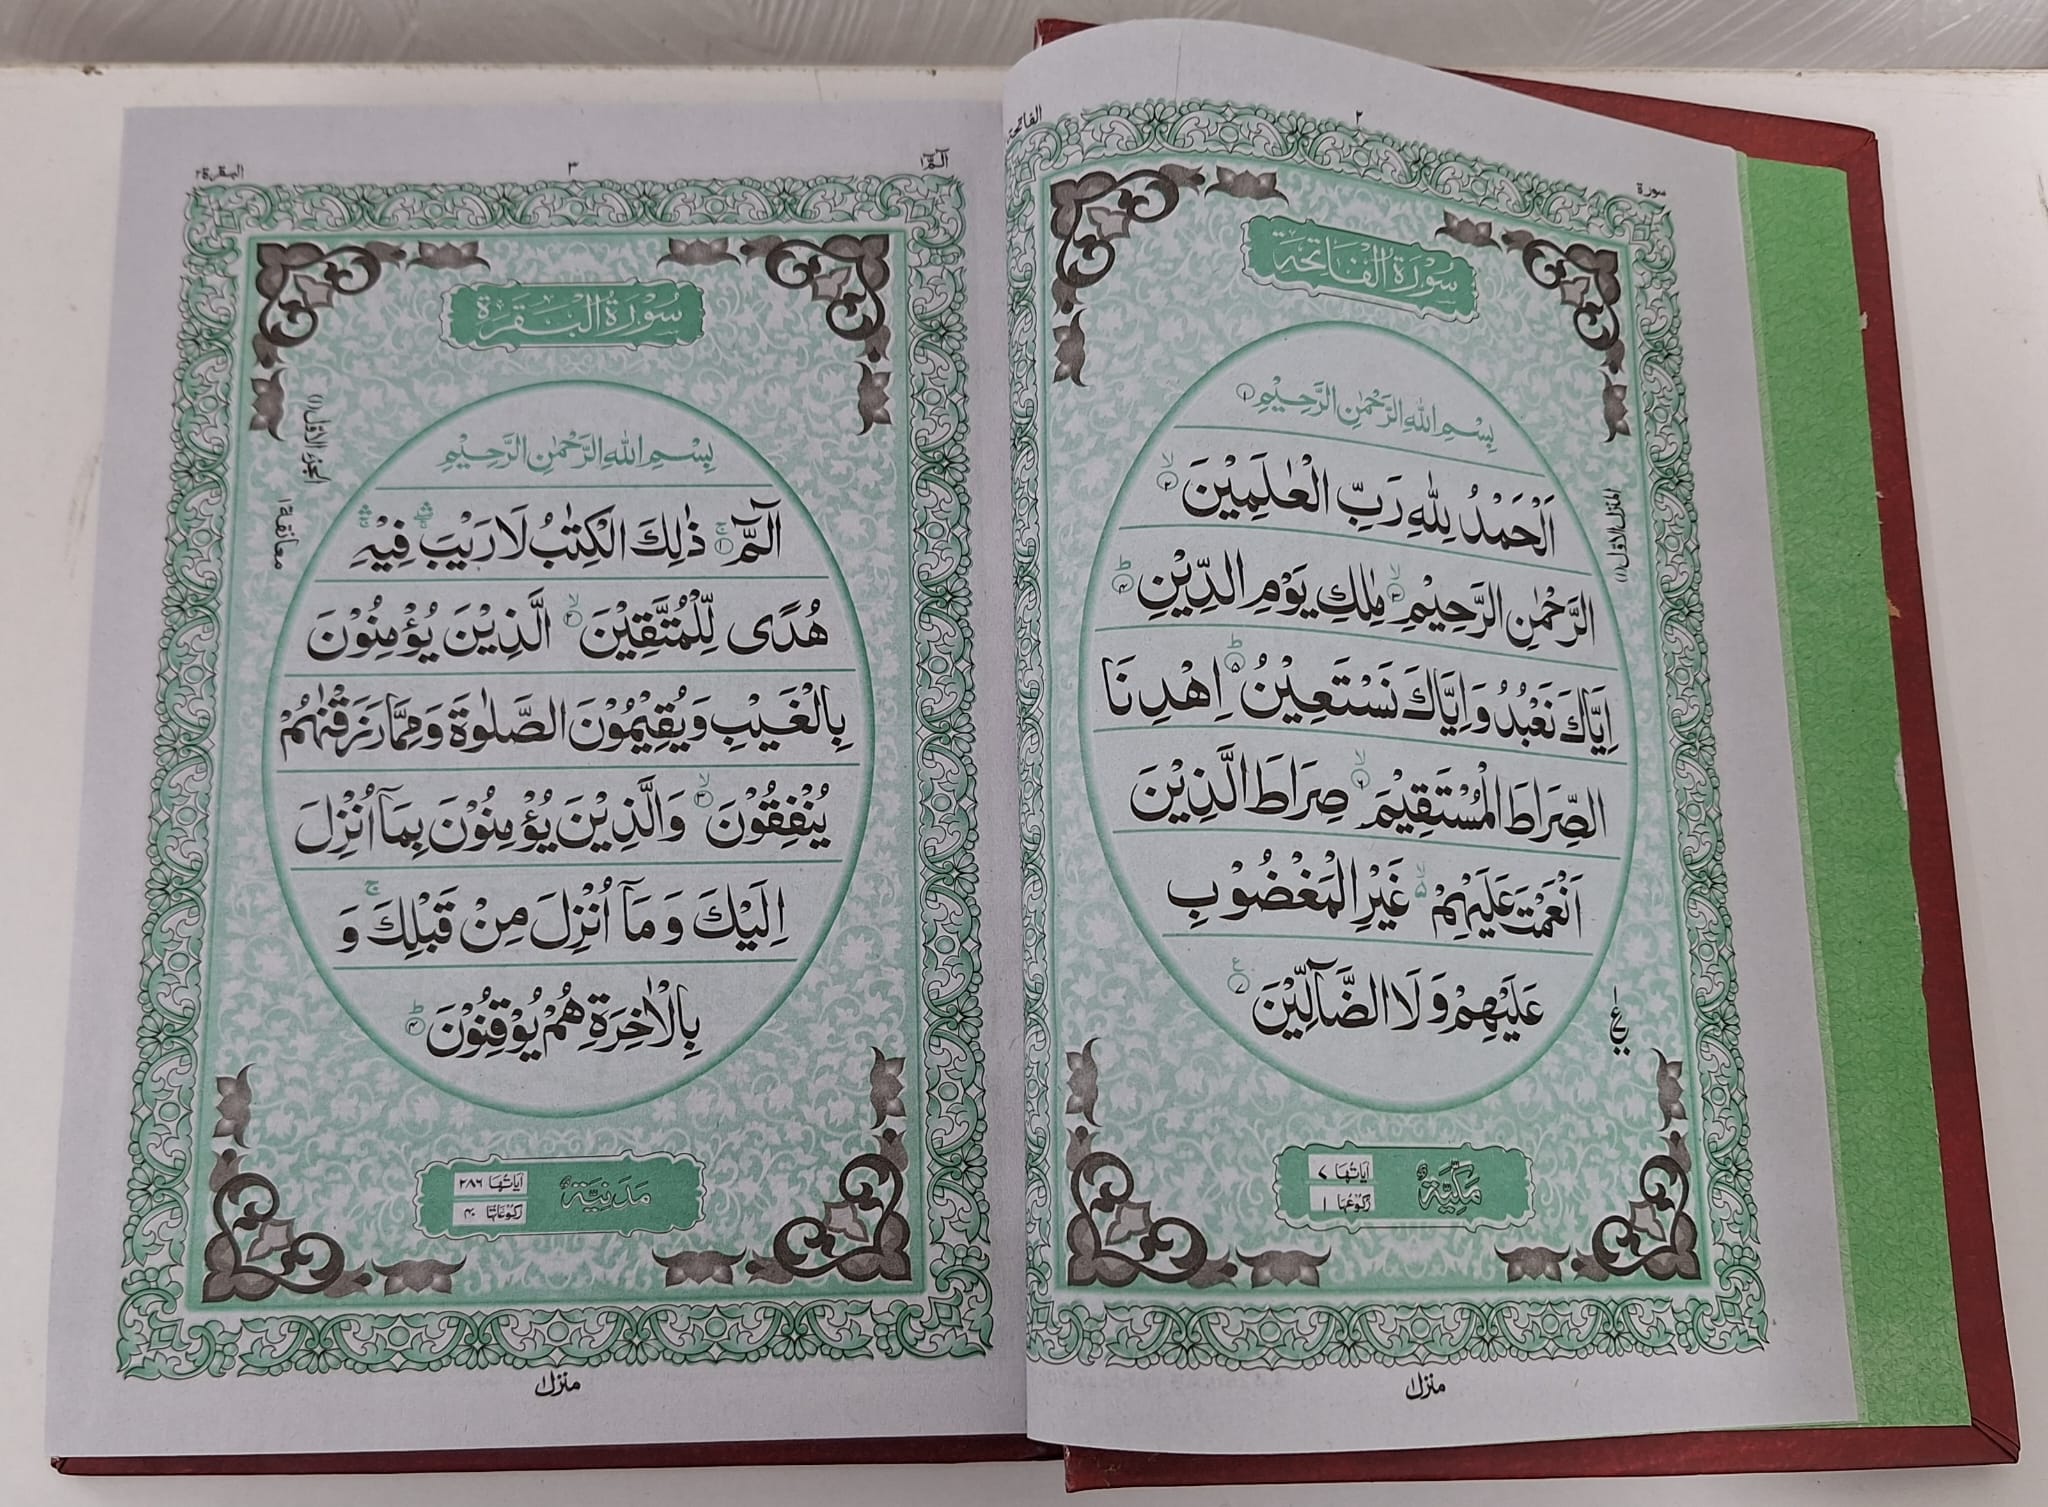 سورة
٢
الفاتحة
سُوْرَةُ الْفَاتِحَةِ
بِسْمِ اللّٰهِ الرَّحْمٰنِ الرَّحِيْمِ ١
اَلْحَمْدُ لِلّٰهِ رَبِّ الْعٰلَمِيْنَ ۙ ٢
الرَّحْمٰنِ الرَّحِيْمِ ۙ ٣ مٰلِكِ يَوْمِ الدِّيْنِ ؕ ٤
اِيَّاكَ نَعْبُدُ وَاِيَّاكَ نَسْتَعِيْنُ ؕ ٥ اِهْدِنَا
الصِّرَاطَ الْمُسْتَقِيْمَ ۙ ٦ صِرَاطَ الَّذِيْنَ
اَنْعَمْتَ عَلَيْهِمْ ۙ ۵ غَيْرِ الْمَغْضُوْبِ
عَلَيْهِمْ وَلَا الضَّآلِّيْنَ ٧ ع
المنزل الاول (١)
ع
مَكِّيَّةٌ
اٰيَاتُهَا ٧
رُكُوْعُهَا ١
منزل ١
الٓمّٓ ١
٣
البقرة ٢
سُوْرَةُ الْبَقَرَةِ
بِسْمِ اللّٰهِ الرَّحْمٰنِ الرَّحِيْمِ
الٓمّٓ ۚ ١ ذٰلِكَ الْكِتٰبُ لَا رَيْبَ ۛ فِيْهِ ۛ
هُدًى لِّلْمُتَّقِيْنَ ۙ ٢ الَّذِيْنَ يُؤْمِنُوْنَ
بِالْغَيْبِ وَيُقِيْمُوْنَ الصَّلٰوةَ وَمِمَّا رَزَقْنٰهُمْ
يُنْفِقُوْنَ ۙ ٣ وَالَّذِيْنَ يُؤْمِنُوْنَ بِمَآ اُنْزِلَ
اِلَيْكَ وَمَآ اُنْزِلَ مِنْ قَبْلِكَ ۚ وَ
بِالْاٰخِرَةِ هُمْ يُوْقِنُوْنَ ؕ ٤
الجزء الاول (١)
معانقة ١
مَدَنِيَّةٌ
اٰيَاتُهَا ٢٨٦
رُكُوْعَاتُهَا ٤٠
منزل ١